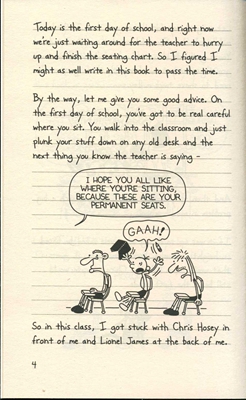 Today is the first day of school, and right now
we're just waiting around for the teacher to hurry
up and finish the seating chart. So I figured I
might as well write in this book to pass the time.
By the way, let me give you some good advice. On
the first day of school, you've got to be real careful
where you sit. You walk into the classroom and just
plunk your stuff down on any old desk and the
next thing you know the teacher is saying -
I HOPE YOU ALL LIKE
WHERE YOU'RE SITTING,
BECAUSE THESE ARE YOUR
PERMANENT SEATS.
GAAH!
So in this class, I got stuck with Chris Hosey in
front of me and Lionel James at the back of me.
4